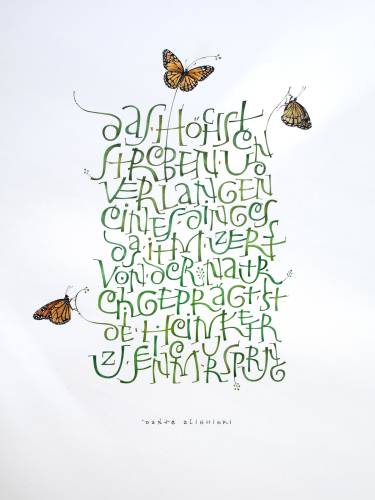 das·Höchste
Streben·und
Verlangen
eines dinges
das·ihm·zuerst
von·der·natur
eingeprägt·ist
die·Heimkehr
zu·seinem·ursprung
Dante Alighieri